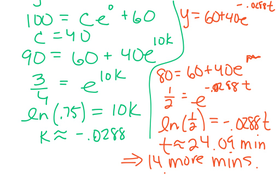 100 = Ce⁰ + 60
C = 40
90 = 60 + 40e^10K
3/4 = e^10K
ln(.75) = 10K
K ≈ -.0288
y = 60+40e^-.0288t
80 = 60+40e
1/2 = e^-.0288t
ln(1/2) = -.0288t
t ≈ 24.09 min
⇒ 14 more mins.